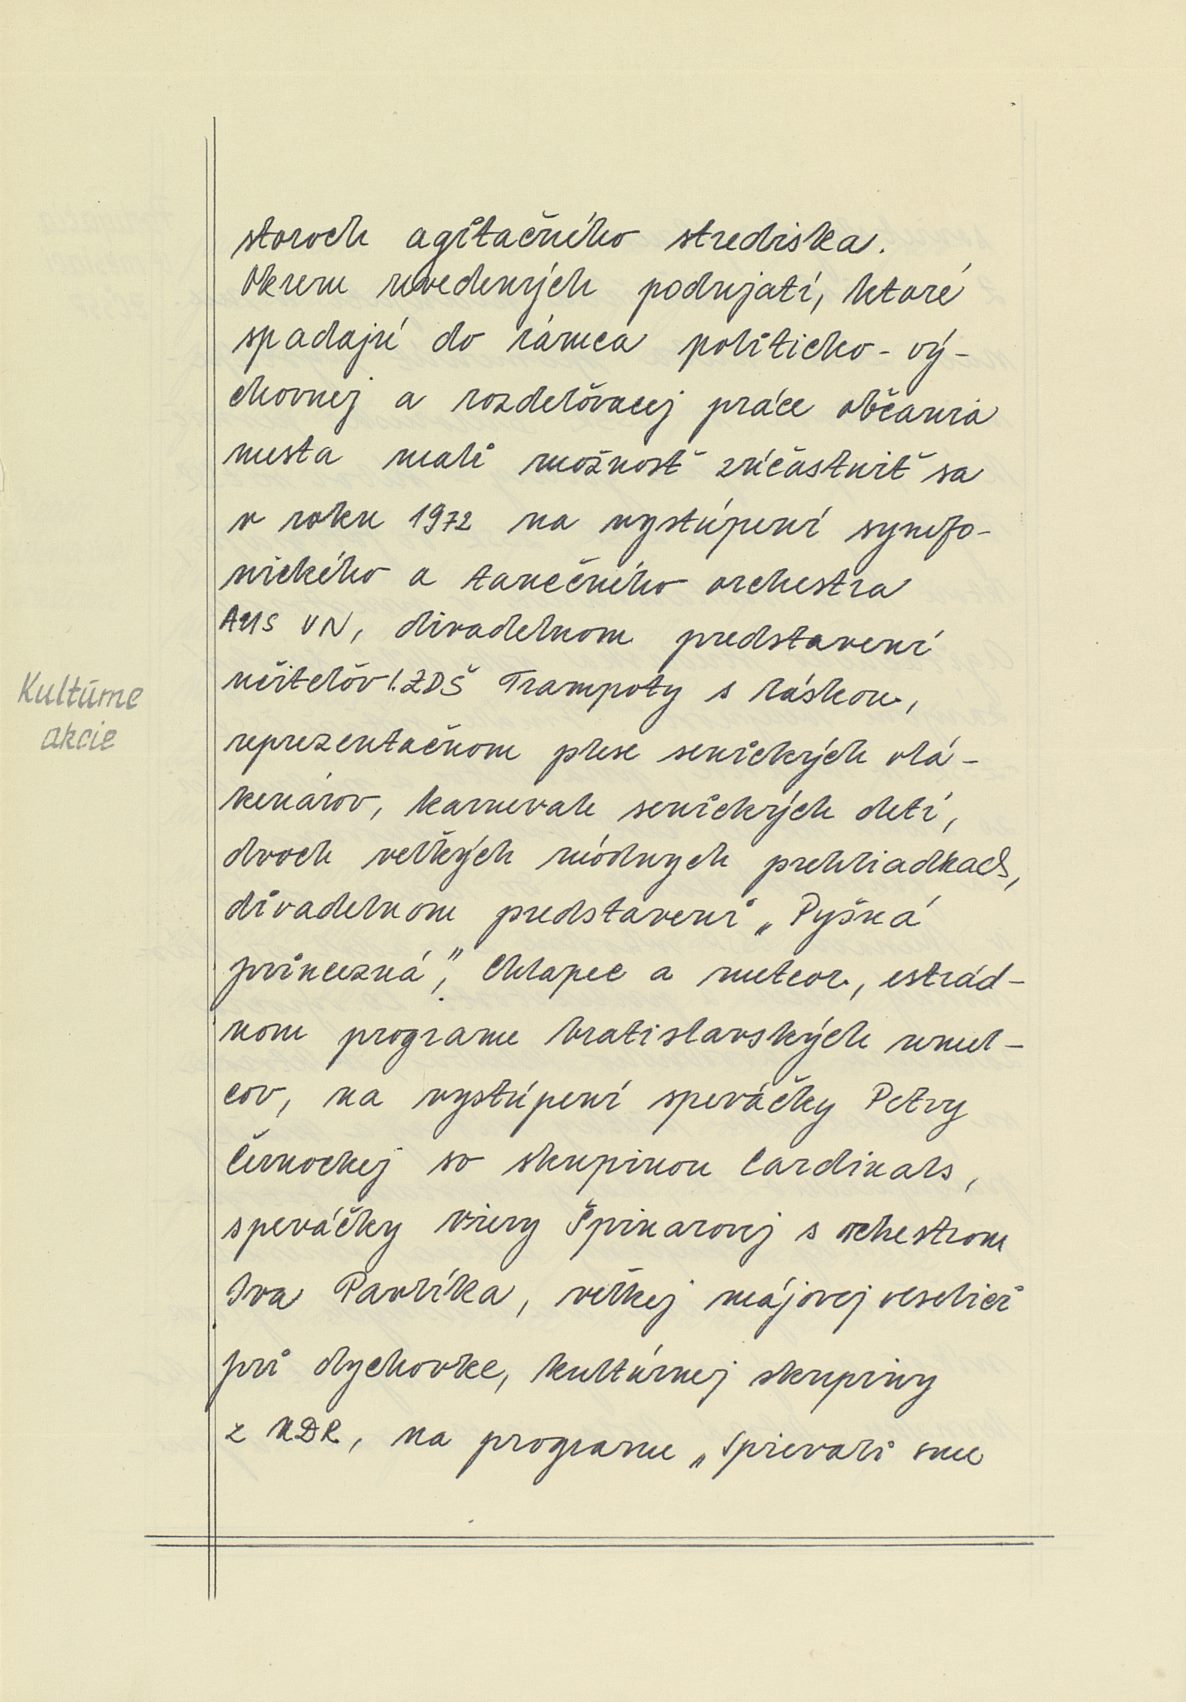 storoch agitačného strediska.
Okrem uvedených podujatí, ktoré
spadajú do rámca politicko-vý-
chovnej a rozdeľovacej práce občania
mesta mali možnosť zúčastniť sa
v roku 1972 na vystúpení symfo-
nického a tanečného orchestra
AUS VN, divadelnom predstavení
učiteľov I. ZDŠ Trampoty s láskou,
Kultúrne
akcie
reprezentačnom plese senických vlá-
kenárov, karnevale senických detí,
dvoch veľkých módnych prehliadkach,
divadelnom predstavení „Pyšná
princezná“, Chlapec a meteor, estrád-
nom programe bratislavských umel-
cov, na vystúpení speváčky Petry
Černockej so skupinou Cardinals,
speváčky Viery Špinarovej s orchestrom
Iva Pavlíka, veľkej májovej veselici
pri dychovke, kultúrnej skupiny
z NDR, na programe „Spievali sme